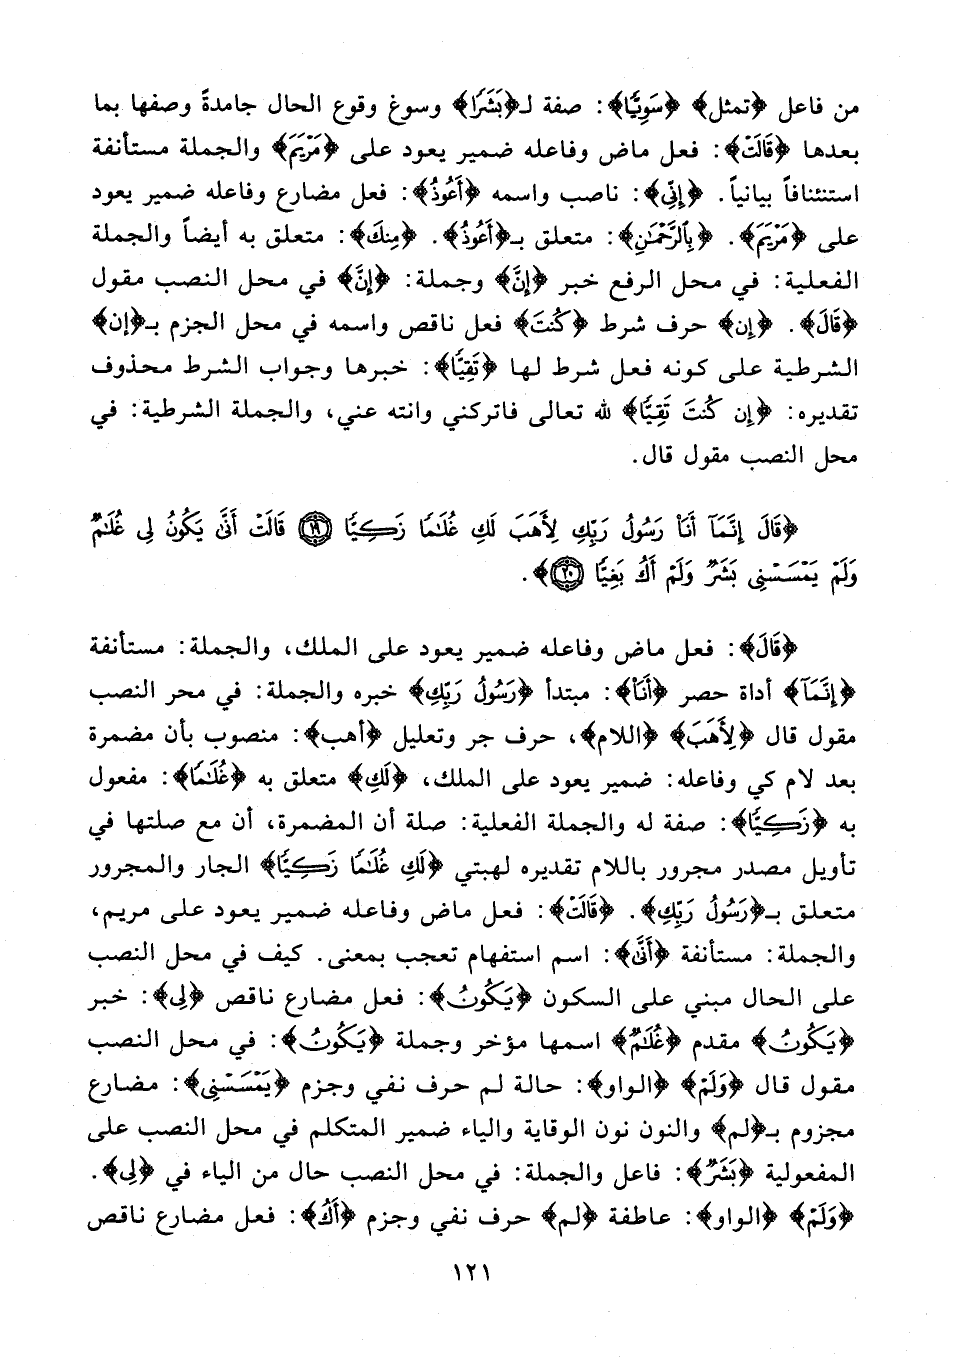 من فاعل ﴿تمثل﴾ ﴿سَوِيًّا﴾: صفة لـ﴿بَشَرًا﴾ وسوغ وقوع الحال جامدةً وصفها بما
بعدها ﴿قَالَتْ﴾: فعل ماض وفاعله ضمير يعود على ﴿مَرْيَمَ﴾ والجملة مستأنفة
استئنافاً بيانياً. ﴿إِنِّي﴾: ناصب واسمه ﴿أَعُوذُ﴾: فعل مضارع وفاعله ضمير يعود
على ﴿مَرْيَمَ﴾. ﴿بِالرَّحْمَٰنِ﴾: متعلق بـ﴿أَعُوذُ﴾. ﴿مِنكَ﴾: متعلق به أيضاً والجملة
الفعلية: في محل الرفع خبر ﴿إنَّ﴾ وجملة: ﴿إنَّ﴾ في محل النصب مقول
﴿قَالَ﴾. ﴿إن﴾ حرف شرط ﴿كُنتَ﴾ فعل ناقص واسمه في محل الجزم بـ﴿إن﴾
الشرطية على كونه فعل شرط لها ﴿تَقِيًّا﴾: خبرها وجواب الشرط محذوف
تقديره: ﴿إِن كُنتَ تَقِيًّا﴾ لله تعالى فاتركني وانته عني، والجملة الشرطية: في
محل النصب مقول قال.
﴿قَالَ إِنَّمَآ أَنَا۠ رَسُولُ رَبِّكِ لِأَهَبَ لَكِ غُلَٰمًا زَكِيًّا ﴿١٩﴾ قَالَتْ أَنَّىٰ يَكُونُ لِي غُلَٰمٌ
وَلَمْ يَمْسَسْنِي بَشَرٌ وَلَمْ أَكُ بَغِيًّا ﴿٢٠﴾﴾.
﴿قَالَ﴾: فعل ماض وفاعله ضمير يعود على الملك، والجملة: مستأنفة
﴿إِنَّمَآ﴾ أداة حصر ﴿أَنَا۠﴾: مبتدأ ﴿رَسُولُ رَبِّكِ﴾ خبره والجملة: في محر النصب
مقول قال ﴿لِأَهَبَ﴾ ﴿اللام﴾، حرف جر وتعليل ﴿أهب﴾: منصوب بأن مضمرة
بعد لام كي وفاعله: ضمير يعود على الملك، ﴿لَكِ﴾ متعلق به ﴿غُلَٰمًا﴾: مفعول
به ﴿زَكِيًّا﴾: صفة له والجملة الفعلية: صلة أن المضمرة، أن مع صلتها في
تأويل مصدر مجرور باللام تقديره لهبتي ﴿لَكِ غُلَٰمًا زَكِيًّا﴾ الجار والمجرور
متعلق بـ﴿رَسُولُ رَبِّكِ﴾. ﴿قَالَتْ﴾: فعل ماض وفاعله ضمير يعود على مريم،
والجملة: مستأنفة ﴿أَنَّىٰ﴾: اسم استفهام تعجب بمعنى. كيف في محل النصب
على الحال مبني على السكون ﴿يَكُونُ﴾: فعل مضارع ناقص ﴿لِي﴾: خبر
﴿يَكُونُ﴾ مقدم ﴿غُلَٰمٌ﴾ اسمها مؤخر وجملة ﴿يَكُونُ﴾: في محل النصب
مقول قال ﴿وَلَمْ﴾ ﴿الواو﴾: حالة لم حرف نفي وجزم ﴿يَمْسَسْنِي﴾: مضارع
مجزوم بـ﴿لم﴾ والنون نون الوقاية والياء ضمير المتكلم في محل النصب على
المفعولية ﴿بَشَرٌ﴾: فاعل والجملة: في محل النصب حال من الياء في ﴿لِي﴾.
﴿وَلَمْ﴾ ﴿الواو﴾: عاطفة ﴿لم﴾ حرف نفي وجزم ﴿أَكُ﴾: فعل مضارع ناقص
١٢١